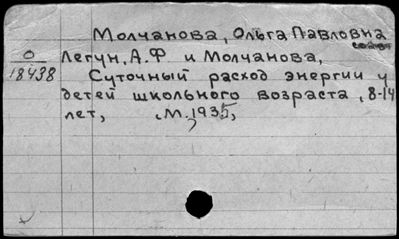 Молчанова, Ольга Павловна
соавт.
О
18438
Легун, А.Ф и Молчанова,
Суточный расход энергии у
детей школьного возраста, 8-14
лет, М. 1935,